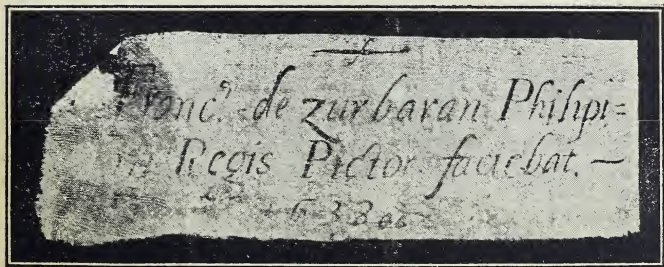 Franc.º de zurbaran Philipi=
Regis Pictor faciebat. —
1638